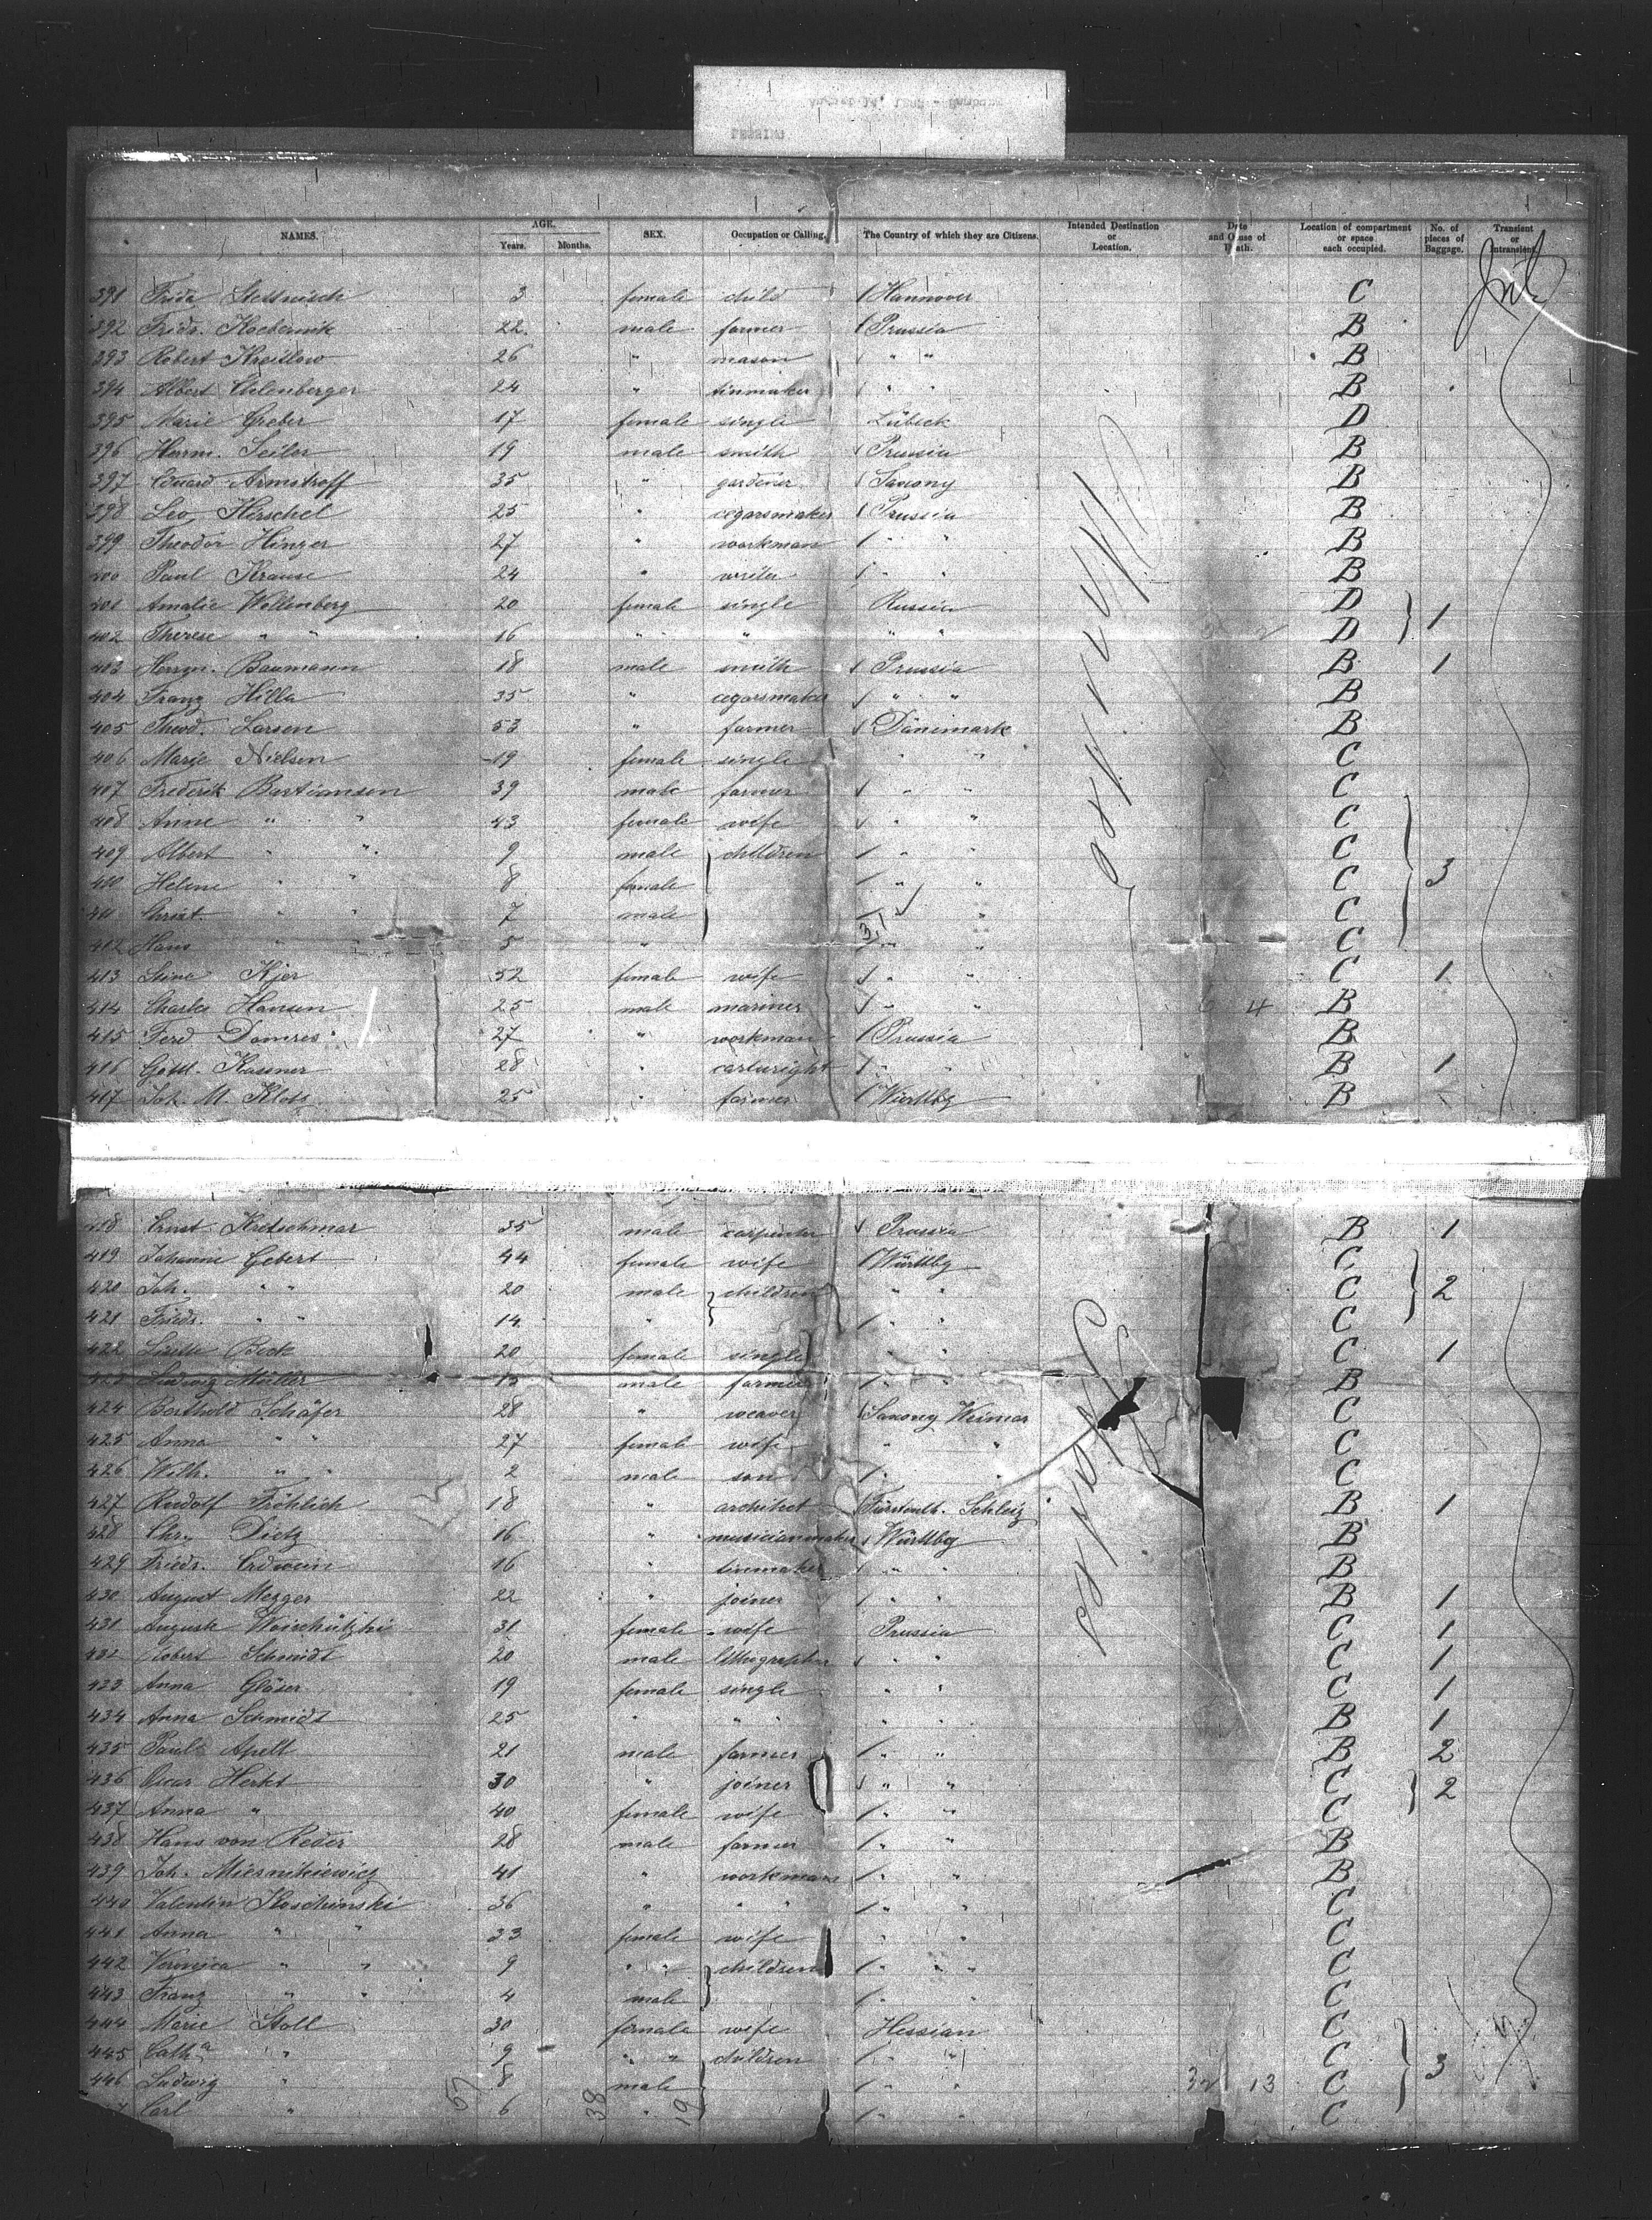 LESSING
NAMES. AGE. Years. Months. SEX. Occupation or Calling. The Country of which they are Citizens. Intended Destination or Location. Date and Cause of Death. Location of compartment or space each occupied. No. of pieces of Baggage. Transient or Intransient.
391 Frida 3 female child Hannover C
392 Fridr. 22 male farmer Prussia B
393 Robert 26 " mason " " B
394 Albert 24 " tinmaker " " B
395 Marie Greber 17 female single Lübeck D
396 Herm. Seiler 19 male smith Prussia B
397 Eduard Armstroff 35 " gardener Saxony B
398 Leo Hirschel 25 " cegarsmaker Prussia B
399 Theodor Hinzer 27 " workman " " B
400 Paul Krause 24 " writer " " B
401 Amalie Wollenberg 20 female single Russia D
402 Therese " " 16 " " " " D 1
403 Herm. Baumann 18 male smith Prussia B 1
404 Franz Hilla 35 " cegarsmaker " " B
405 Theod. Larsen 53 " farmer Dänemark B
406 Marie Nielsen 19 female single " " C
407 Frederik Bastiansen 39 male farmer " " C
408 Anne " " 43 female wife " " C
409 Albert " " 9 male children " " C
410 Helene " " 8 female " " C 3
411 Christ. " " 7 male " " C
412 Hans " " 5 " " " C
413 Stine Kjer 52 female wife " " C 1
414 Charles Hansen 25 male mariner " " 4 B
415 Ferd Domres 27 " workman Prussia B
416 Gottl. Kassner 28 " cartwright " " B 1
417 Joh. M. Kloss 25 " farmer Württbg B
418 Ernst Kretschmar 35 male carpenter Prussia B 1
419 Johanne Gebert 44 female wife Württbg C
420 Joh. " " 20 male children " " C 2
421 Friedr. " " 14 " " " C
422 Beck 20 female single " " C 1
423 Ludwig Müller male farmer " " B
424 Berthold Schäfer 28 " weaver Saxony Weimar C
425 Anna " " 27 female wife " " C
426 Wilh. " " 2 male son " " C
427 Rudolf Fröhlich 18 " architect Schleiz B 1
428 Chr. Dietz 16 " musicianmaker Württbg B
429 Friedr. Erdwein 16 " tinmaker " " B
430 August Mezger 22 " joiner " " B 1
431 Auguste 31 female wife Prussia C 1
432 Robert Schmidt 20 male lithographer " " C 1
433 Anna Gläser 19 female single " " C 1
434 Anna Schmidt 25 " " " " B 1
435 Paul Apelt 21 male farmer " " B 2
436 Oscar Herkt 30 " joiner " " C 2
437 Anna " 40 female wife " " C
438 Hans von Reder 28 male farmer " " B
439 Joh. Miernikiewicz 41 " workman " " B
440 Valentin Koschinski 36 " " " " " C
441 Anna " " 33 female wife " " C
442 Veronica " " 9 " " children " " " C
443 Franz " " 4 male " " C
444 Marie Stoll 30 female wife Hessian C
445 Catha " 9 " " children " " C
446 Ludwig " 8 male " " 13 C 3
Carl " 6 " " " C
57 38 19